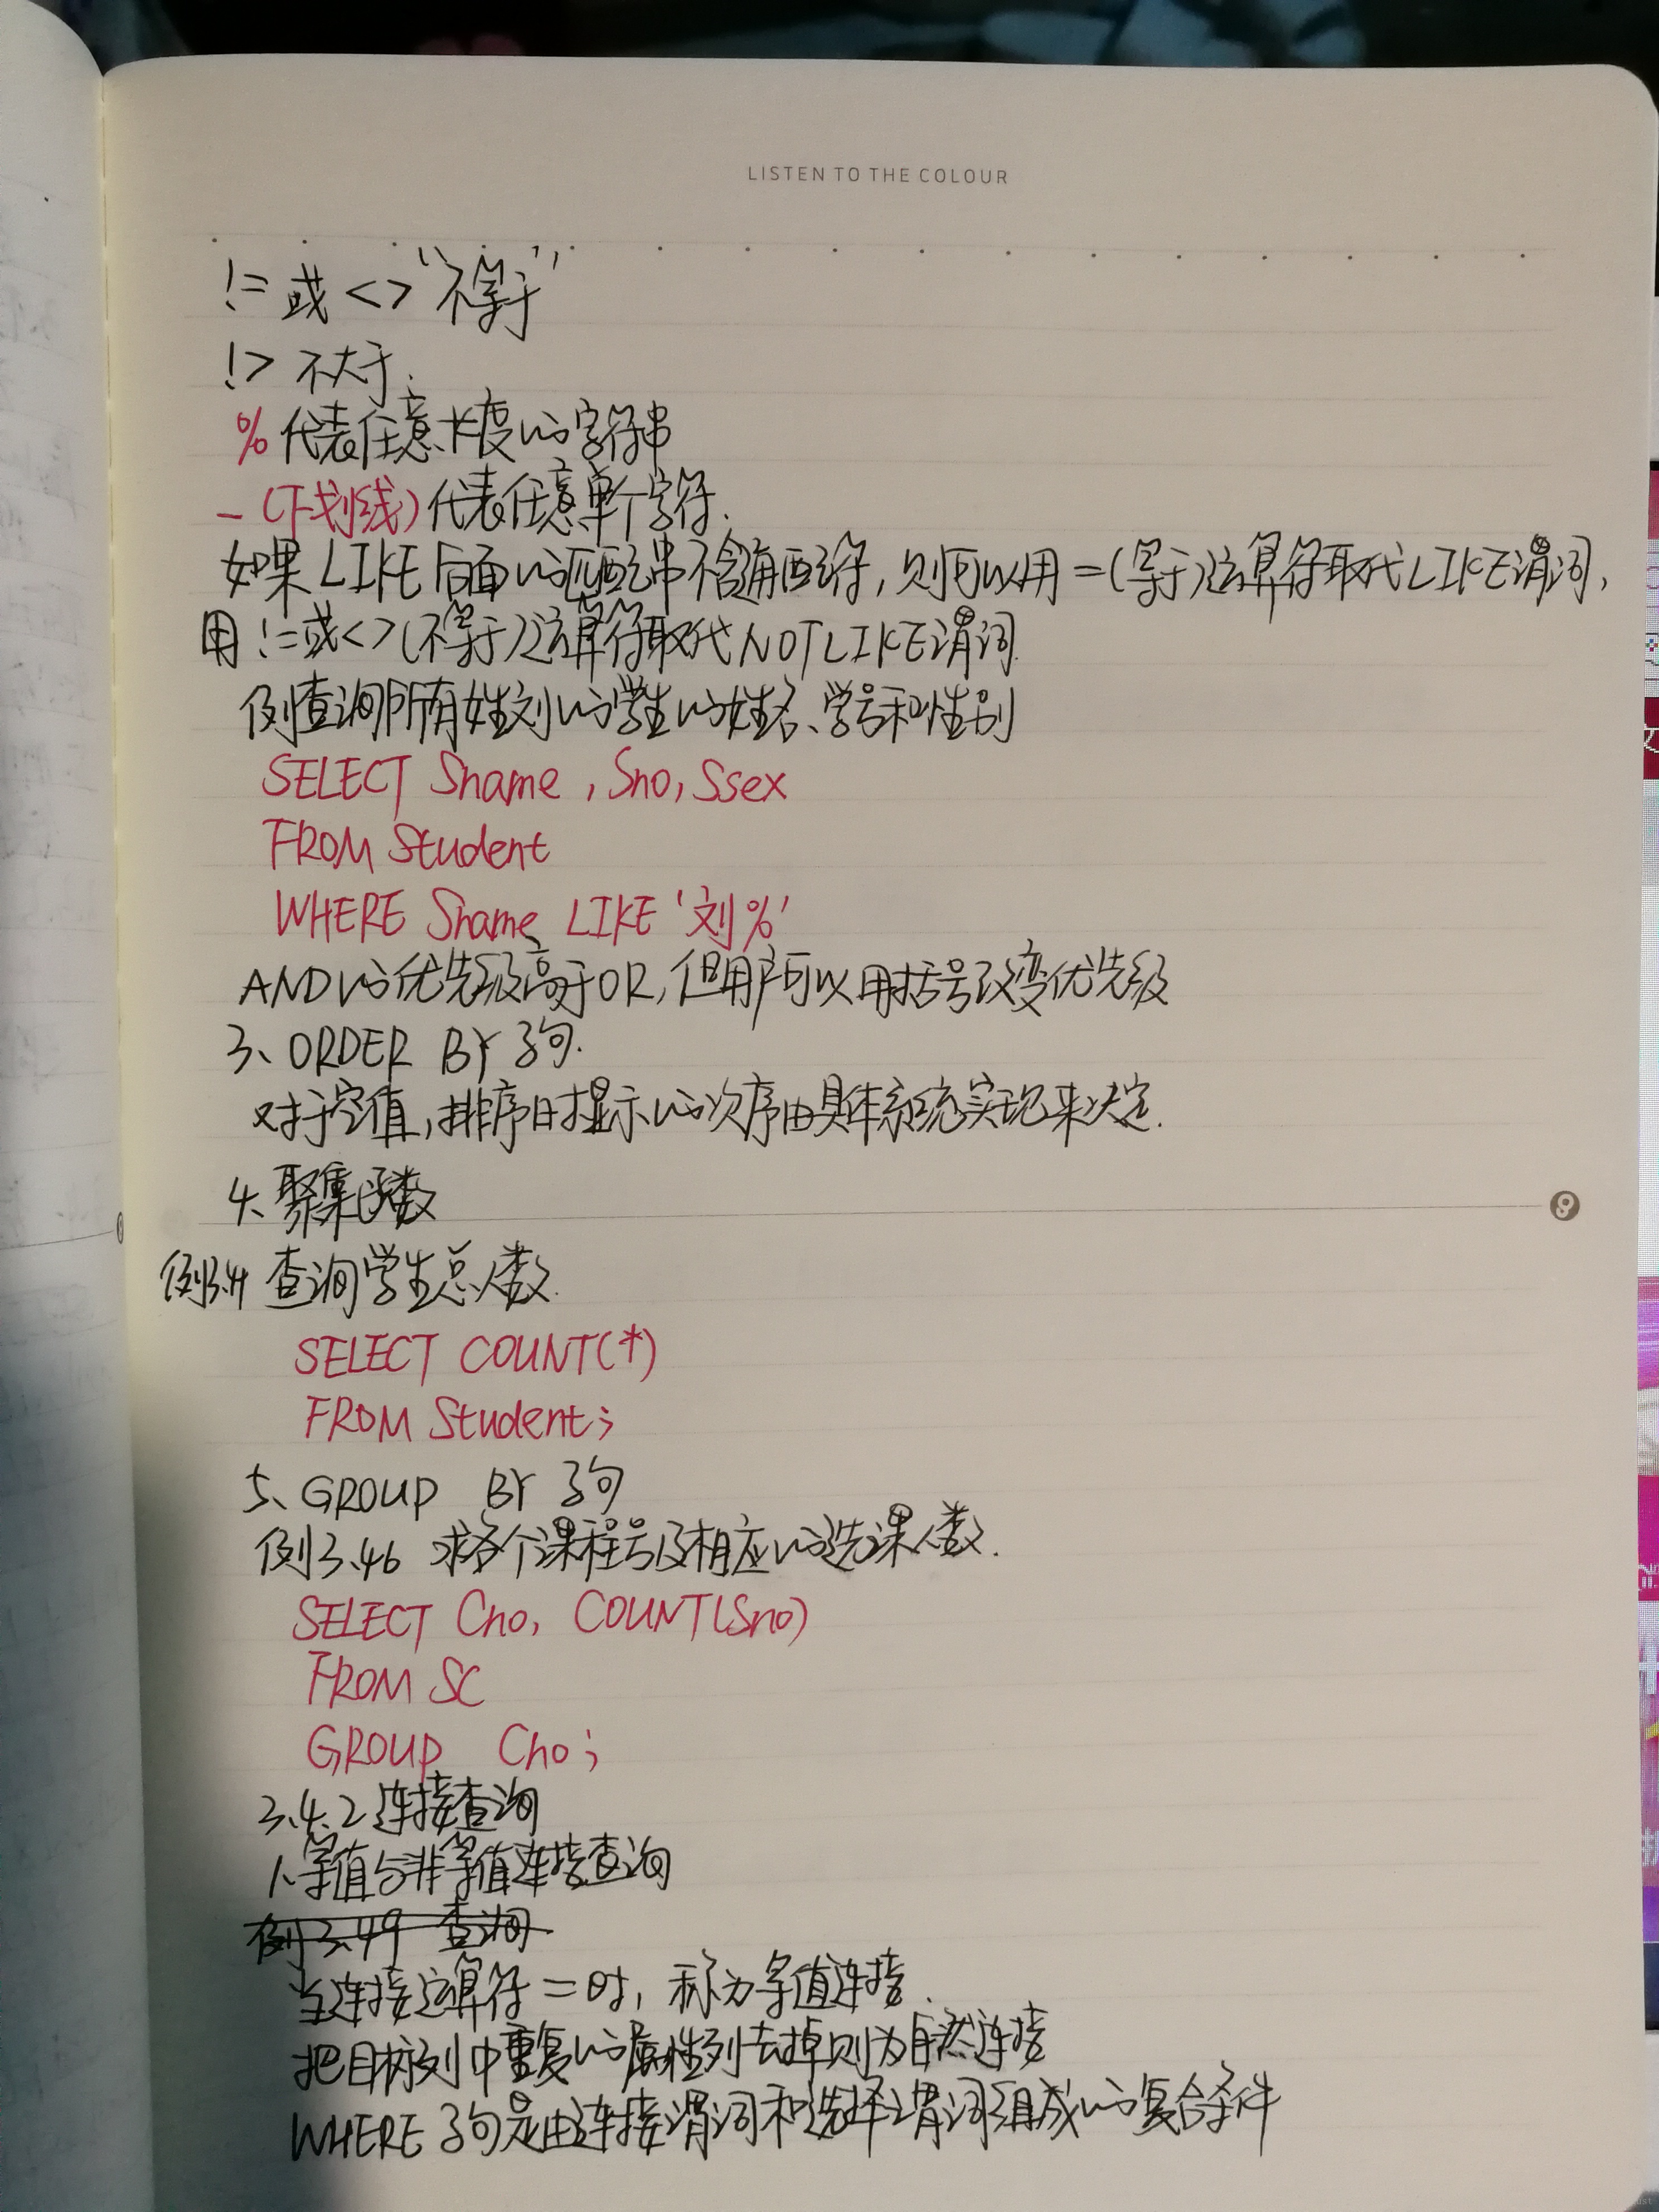 LISTEN TO THE COLOUR
!= 或 <> "不等于"
!> 不大于.
% 代表任意长度的字符串
_ (下划线) 代表任意单个字符.
如果 LIKE 后面的匹配串不含通配符, 则可以用 = (等于) 运算符取代 LIKE 谓词,
用 != 或 <> (不等于) 运算符取代 NOT LIKE 谓词.
例 查询所有姓刘的学生的姓名、学号和性别
SELECT Sname , Sno, Ssex
FROM Student
WHERE Sname LIKE '刘%'
AND的优先级高于OR, 但用户可以用括号改变优先级
3、ORDER BY 子句.
对于空值, 排序时显示的次序由具体系统实现来决定.
4、聚集函数
例3.41 查询学生总人数.
SELECT COUNT(*)
FROM Student;
5、GROUP BY 子句
例3.46 求各个课程号及相应的选课人数.
SELECT Cno, COUNT(Sno)
FROM SC
GROUP Cno;
3.4.2 连接查询
1、等值与非等值连接查询
例3.49 查询
当连接运算符 = 时, 称为等值连接.
把目标列中重复的属性列去掉则为自然连接
WHERE 子句是由连接谓词和选择谓词组成的复合条件